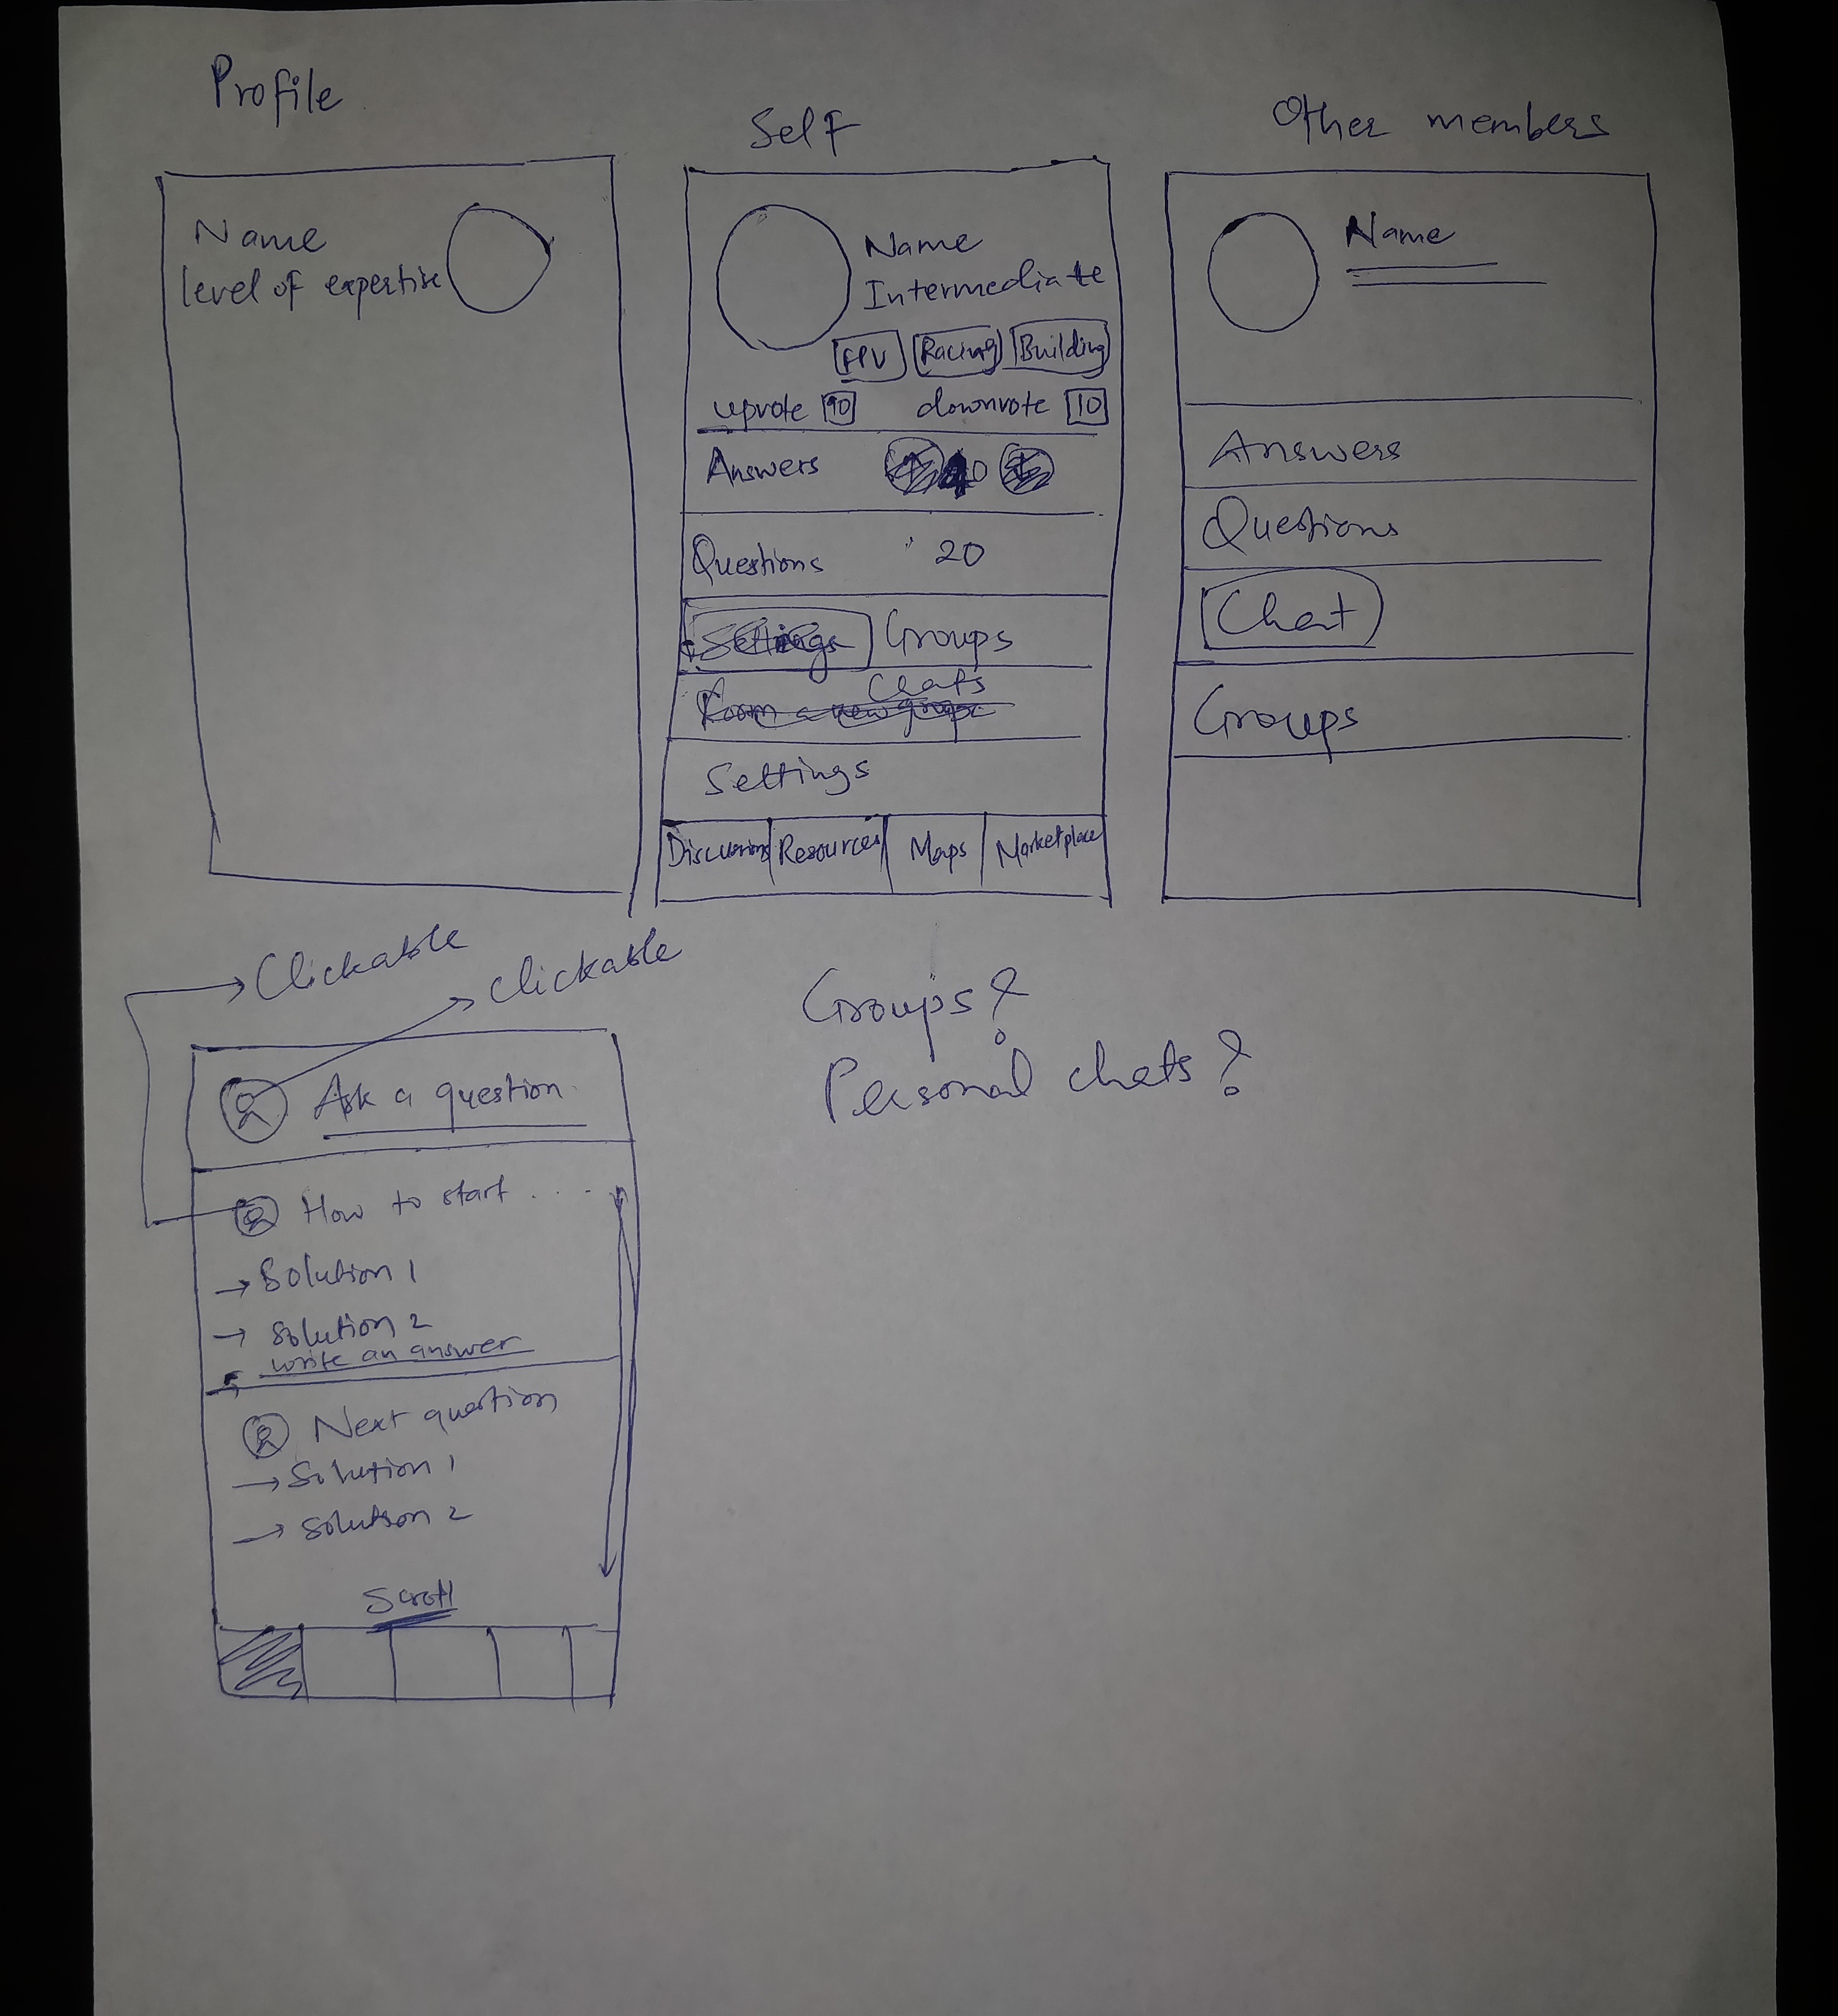 Profile
Self
Other members
Name
level of expertise
Name
Intermediate
FPV Racing Building
upvote 90 downvote 10
Answers 40
Questions 20
Settings Groups
Chats
Form a new group
Settings
Discussions Resources Maps Marketplace
Name
Answers
Questions
Chat
Groups
Clickable
clickable
Ask a question
How to start ....
→ Solution 1
→ Solution 2
write an answer
Next question
→ Solution 1
→ Solution 2
Scroll
Groups?
Personal chats?